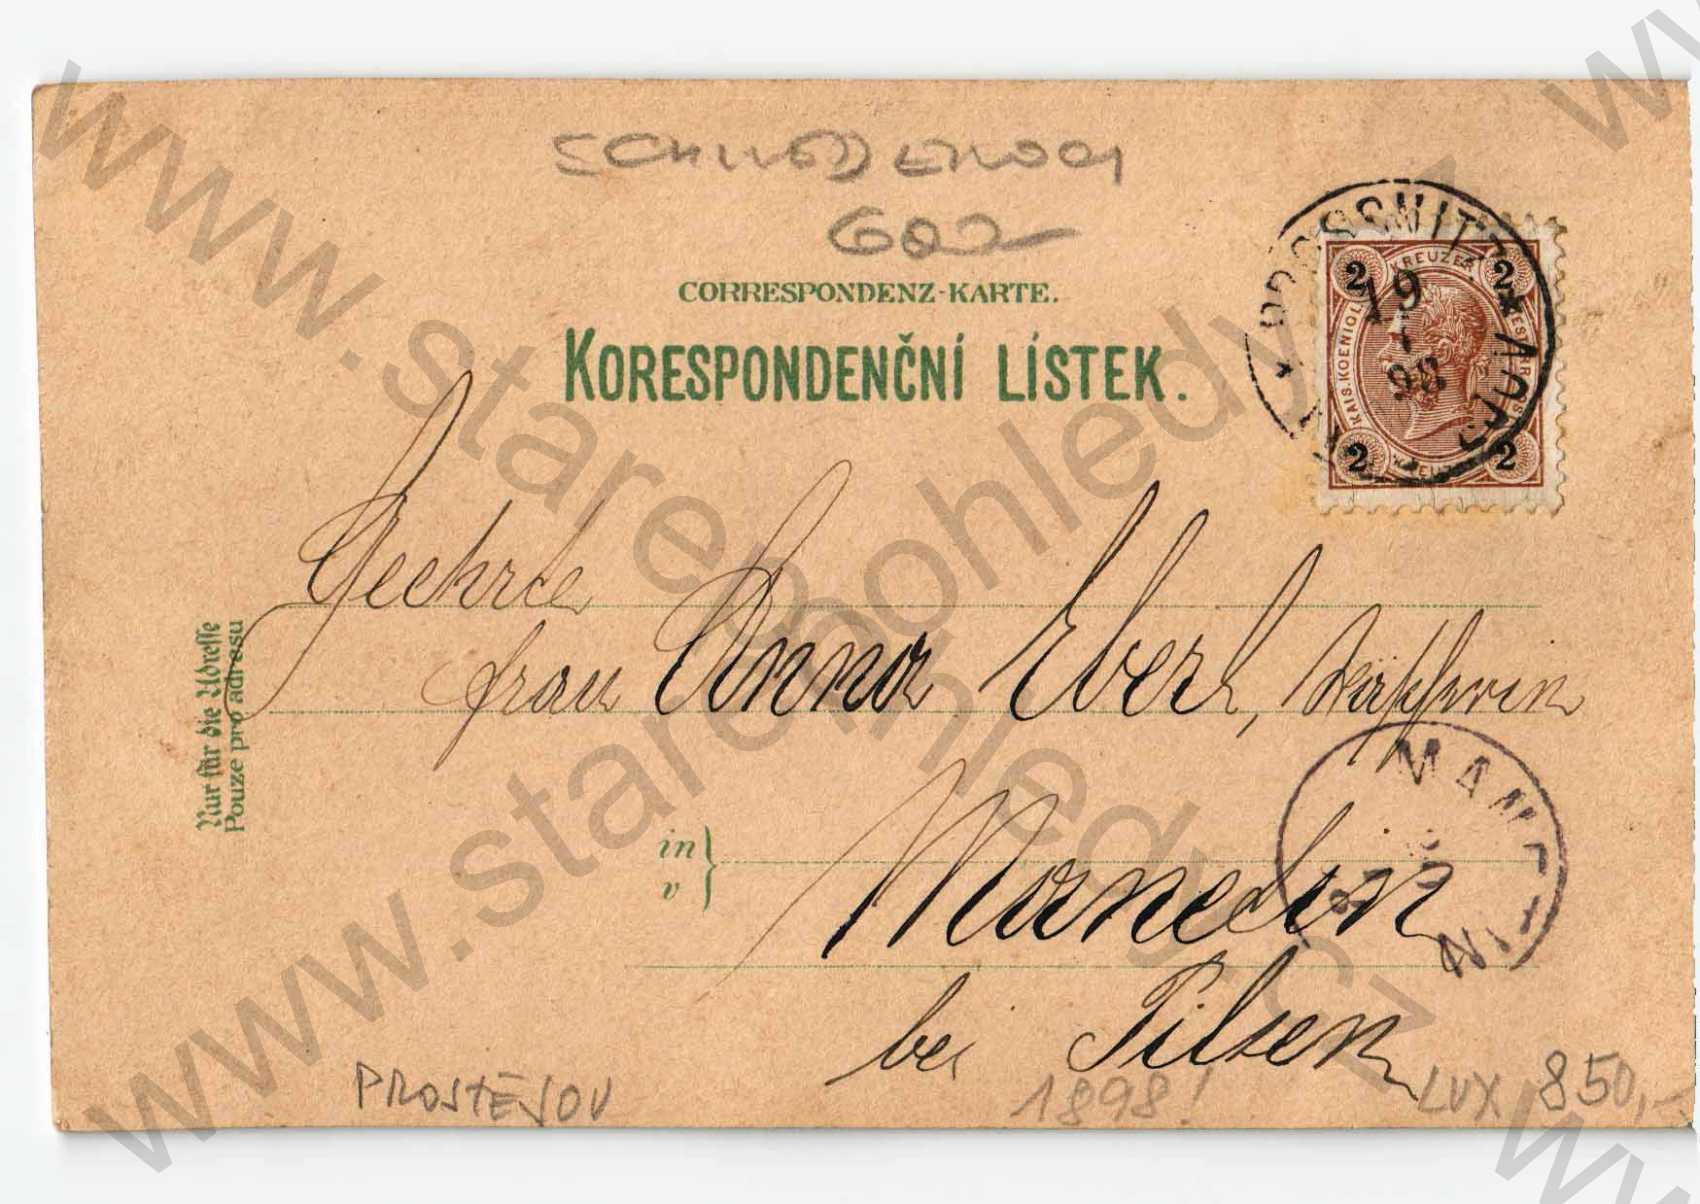 CORRESPONDENZ-KARTE.
KORESPONDENČNÍ LÍSTEK.
PROSSNITZ
19
98
2 KREUZER 2
KAIS. KOENIGL.
2 2
Geehrte
frau Anna Eberl,
in
v
Manetin
bei Pilsen
MANETIN
Nur für die Adresse
Pouze pro adresu
PROSTĚJOV
1898!
LUX 850,-
www.starepohledy.cz
www.starepohledy.cz